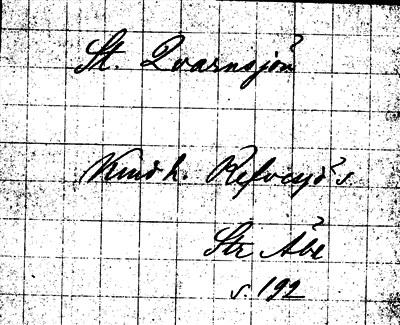 St. Qvarnsjön
Kind h. Refvesjö s
Str Åbe
s. 192